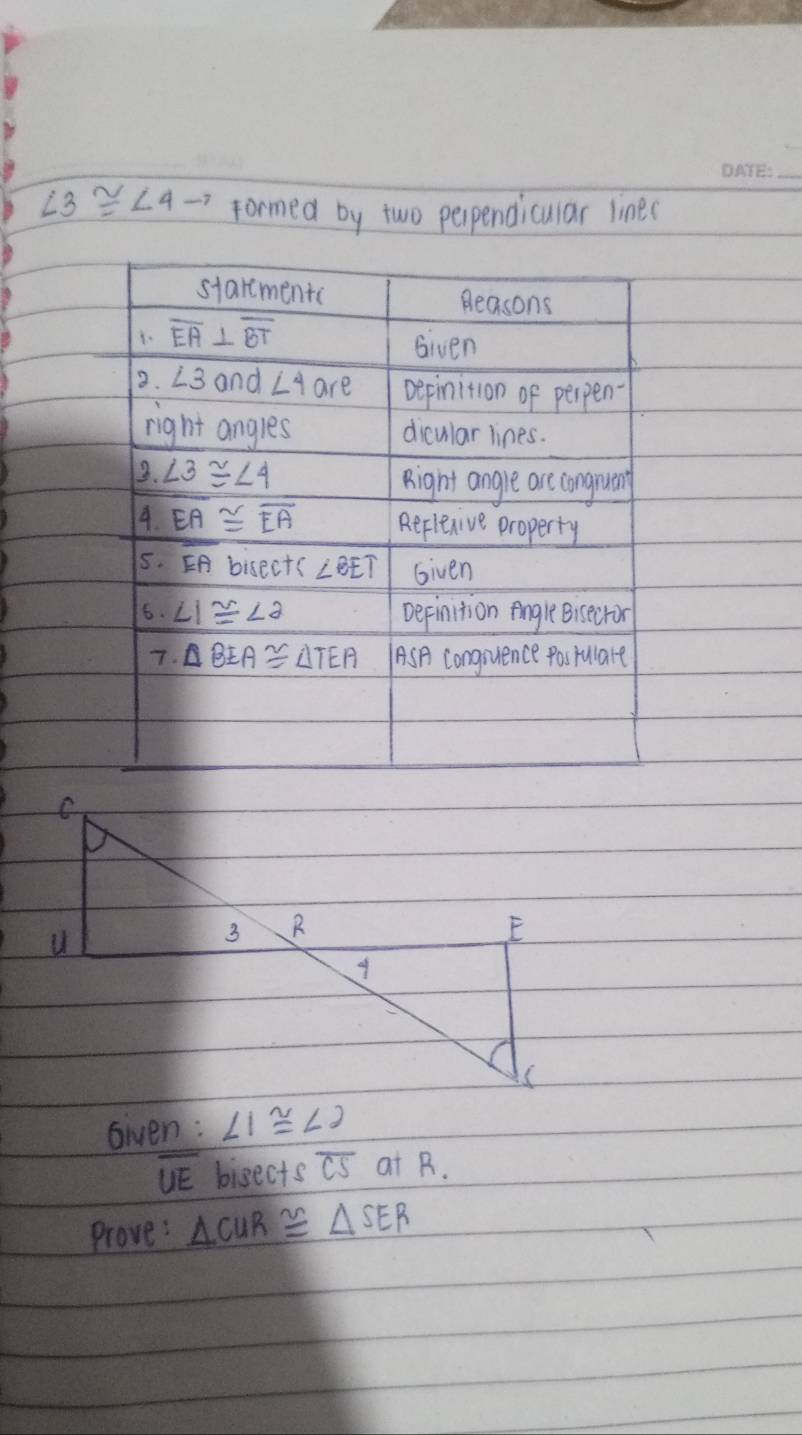 DATE:
∠3 ≅ ∠4 → Formed by two perpendicular lines
Statements Reasons
1. EA ⊥ BT Given
2. ∠3 and ∠4 are Definition of perpen-
right angles dicular lines.
3. ∠3 ≅ ∠4 Right angle are congruent
4. EA ≅ EA Reflexive Property
5. EA bisects ∠BET Given
6. ∠1 ≅ ∠2 Definition Angle Bisector
7. Δ BEA ≅ ΔTEA ASA Congruence Postulate
C
U 3 R E
4
S
Given: ∠1 ≅ ∠2
UE bisects CS at R.
Prove: ΔCUR ≅ ΔSER